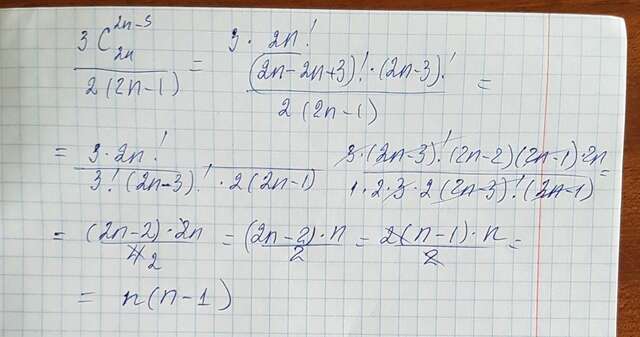 3 C_{2n}^{2n-3} / 2(2n-1) = 3 · 2n! / (2n-2n+3)! · (2n-3)! / 2(2n-1) =
= 3 · 2n! / 3! (2n-3)! · 2(2n-1) 3 · (2n-3)! (2n-2)(2n-1) · 2n / 1 · 2 · 3 · 2 (2n-3)! (2n-1) =
= (2n-2) · 2n / 4 2 = (2n-2) · n / 2 = 2(n-1) · n / 2 =
= n(n-1)